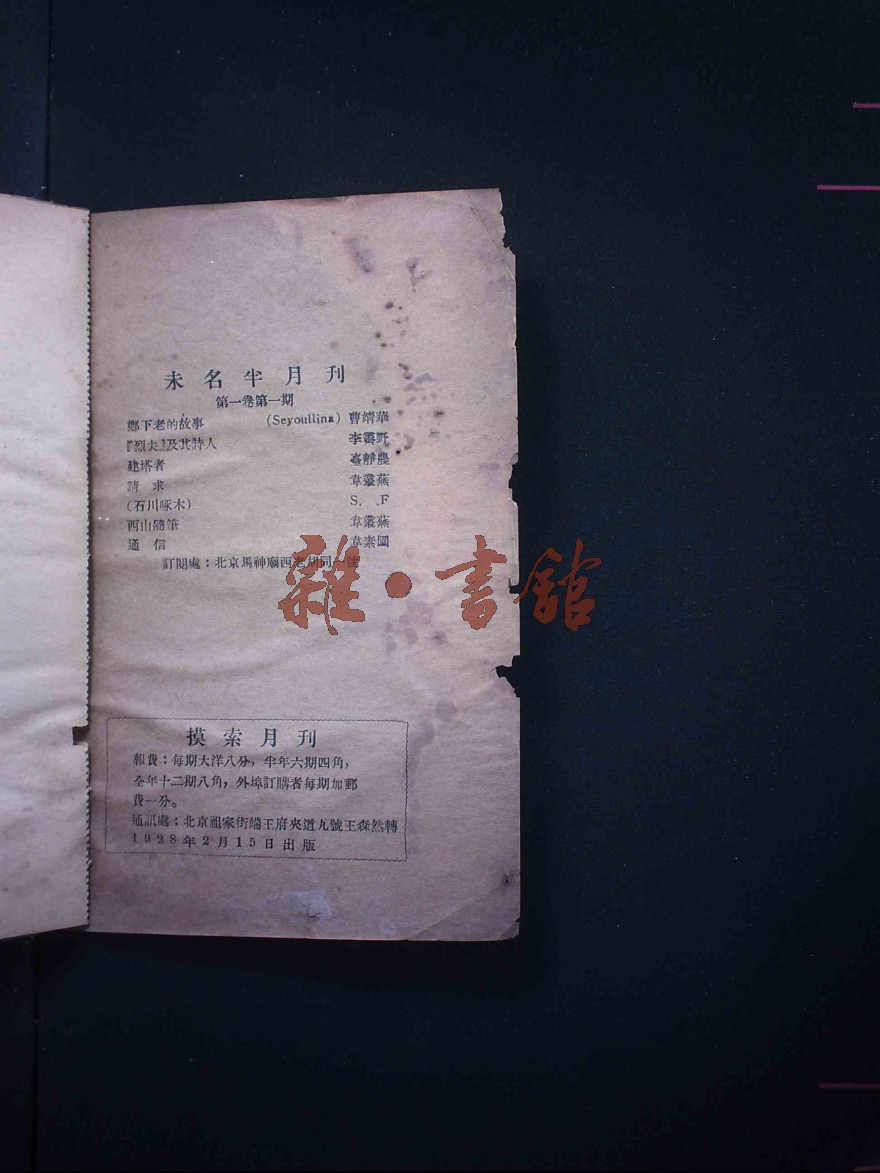 未名半月刊
第一卷第一期
鄉下老的故事 (Seyoullina) 曹靖華
『烈夫』及其詩人 李霽野
建塔者 臺靜農
請求 韋叢蕪
(石川啄木) S. F
西山隨筆 韋叢蕪
通信 韋素園
訂閱處：北京馬神廟西老胡同一號
雜·書館
摸索月刊
報費：每期大洋八分，半年六期四角，
全年十二期八角，外埠訂購者每期加郵
費一分。
通訊處：北京祖家街端王府夾道九號王森然轉
1928年2月15日出版